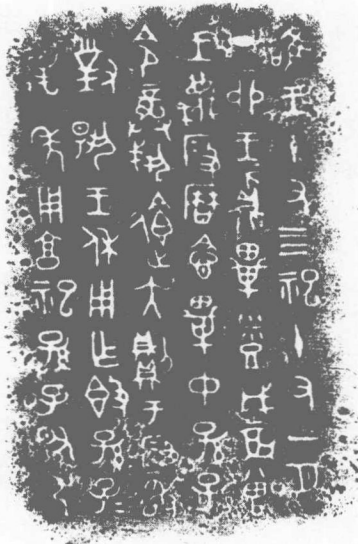 唯王十又四祀十又一月
丁卯王鼒畢登戊辰曾
王蔑段曆念畢中孫子
令龏𢦚大則于段
敢對揚王休用乍簋孫孫子子
萬年用享祀孫子引